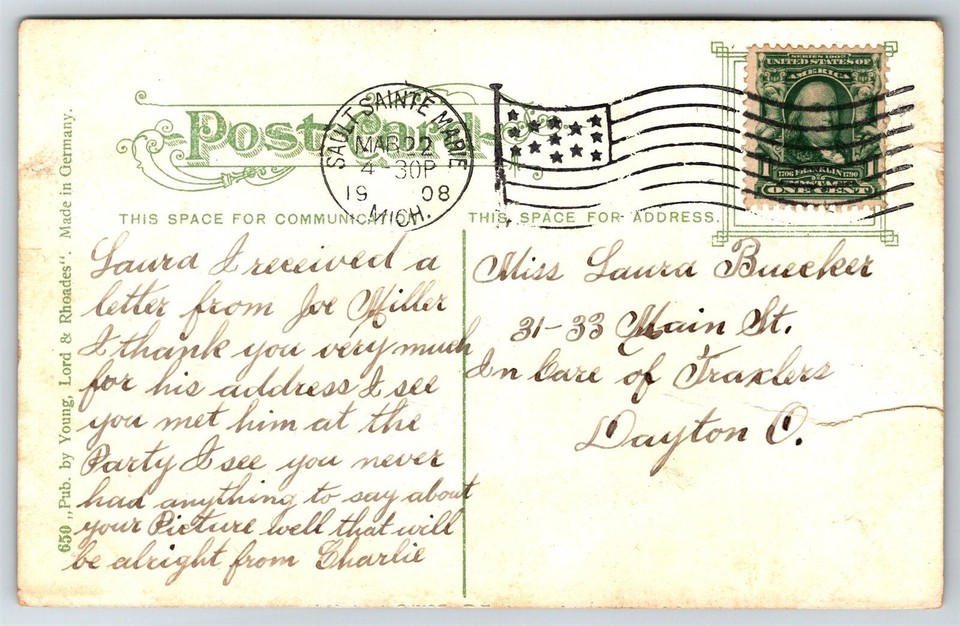 Post Card
SAULT SAINTE MARIE
MAR 22
4-30P
1908
MICH.
SERIES 1902
UNITED STATES OF
AMERICA
1706 FRANKLIN 1790
POSTAGE
1 ONE CENT
THIS SPACE FOR COMMUNICATION
THIS SPACE FOR ADDRESS.
Laura I received a
letter from Joe Miller
I thank you very much
for his address I see
you met him at the
Party I see you never
had anything to say about
your Picture well that will
be alright from Charlie
Miss Laura Buecker
31-33 Main St.
In Care of Traxlers
Dayton O.
650 „Pub. by Young, Lord & Rhoades“. Made in Germany.